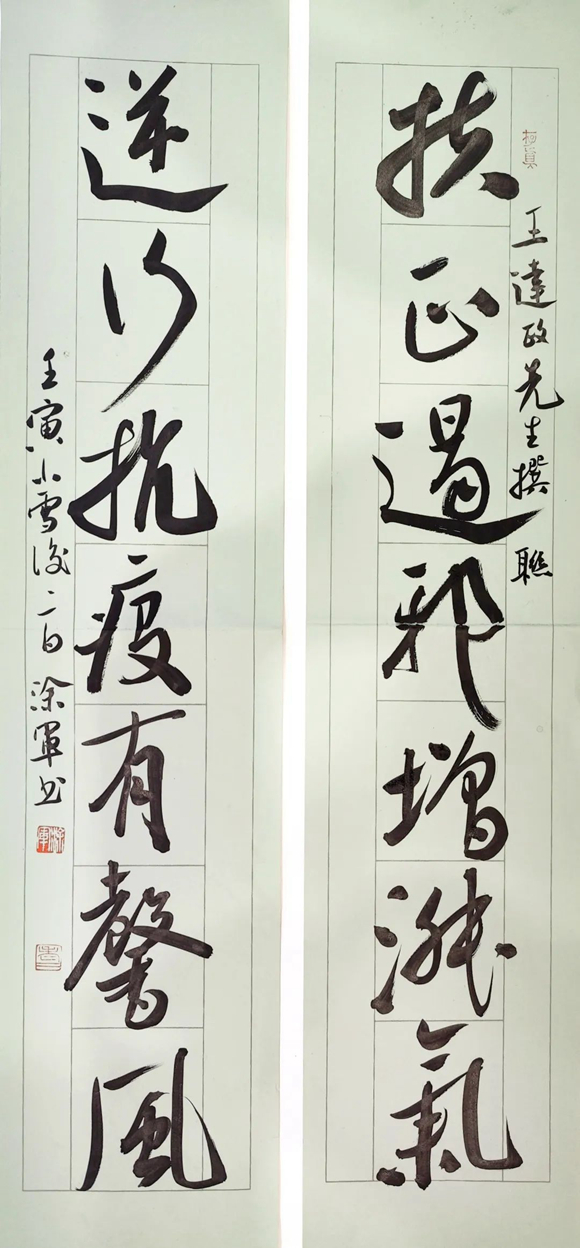 王達政先生撰聯
扶正遏邪增淑氣
逆行抗疫有馨風
壬寅小雪後二日涂軍书